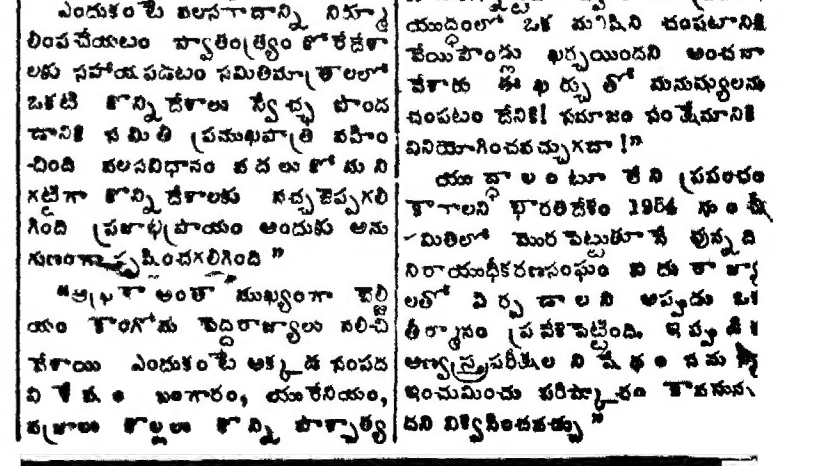 ఎందుకంటే వలసవాదాన్ని నిర్మూ
లింపచేయటం స్వాతంత్ర్యం కోరేదేశా
లకు సహాయపడటం సమితిమాత్రాలలో
ఒకటి కొన్ని దేశాలు స్వేచ్ఛ పొంద
డానికి సమితి ప్రముఖపాత్ర వహిం
చింది వలసవిధానం వదలుకోమని
గట్టిగా కొన్ని దేశాలకు నచ్చజెప్పగలి
గింది ప్రజాభిప్రాయం అందుకు అను
గుణంగా సృష్టించగలిగింది ”
“ఆఫ్రికా అంతా ముఖ్యంగా బెల్జి
యం కాంగోను పెద్దరాజ్యాలు నలిచి
వేశాయి ఎందుకంటే అక్కడ సంపద
విశేషం బంగారం, యురేనియం,
వజ్రాలు కొల్లలు కొన్ని పాశ్చాత్య
యుద్ధంలో ఒక మనిషిని చంపటానికి
వేయిపౌండ్లు ఖర్చయిందని అంచనా
వేశారు ఈ ఖర్చుతో మనుష్యులను
చంపటం దేనికి! సమాజం సంక్షేమానికి
వినియోగించవచ్చుగదా !”
యుద్ధాలంటూ లేని ప్రపంచం
కావాలని భారతదేశం 1954 నుంచీ
సమితిలో మొరపెట్టుతూనే వున్నది
నిరాయుధీకరణసంఘం ఐదు రాజ్యా
లతో ఏర్పడాలని అప్పుడు ఒక
తీర్మానం ప్రవేశపెట్టింది. ఇప్పటికి
అణ్వస్త్రపరీక్షల నిషేధం సమస్య
ఇంచుమించు పరిష్కారం కావను
దని విశ్వసించవచ్చు”